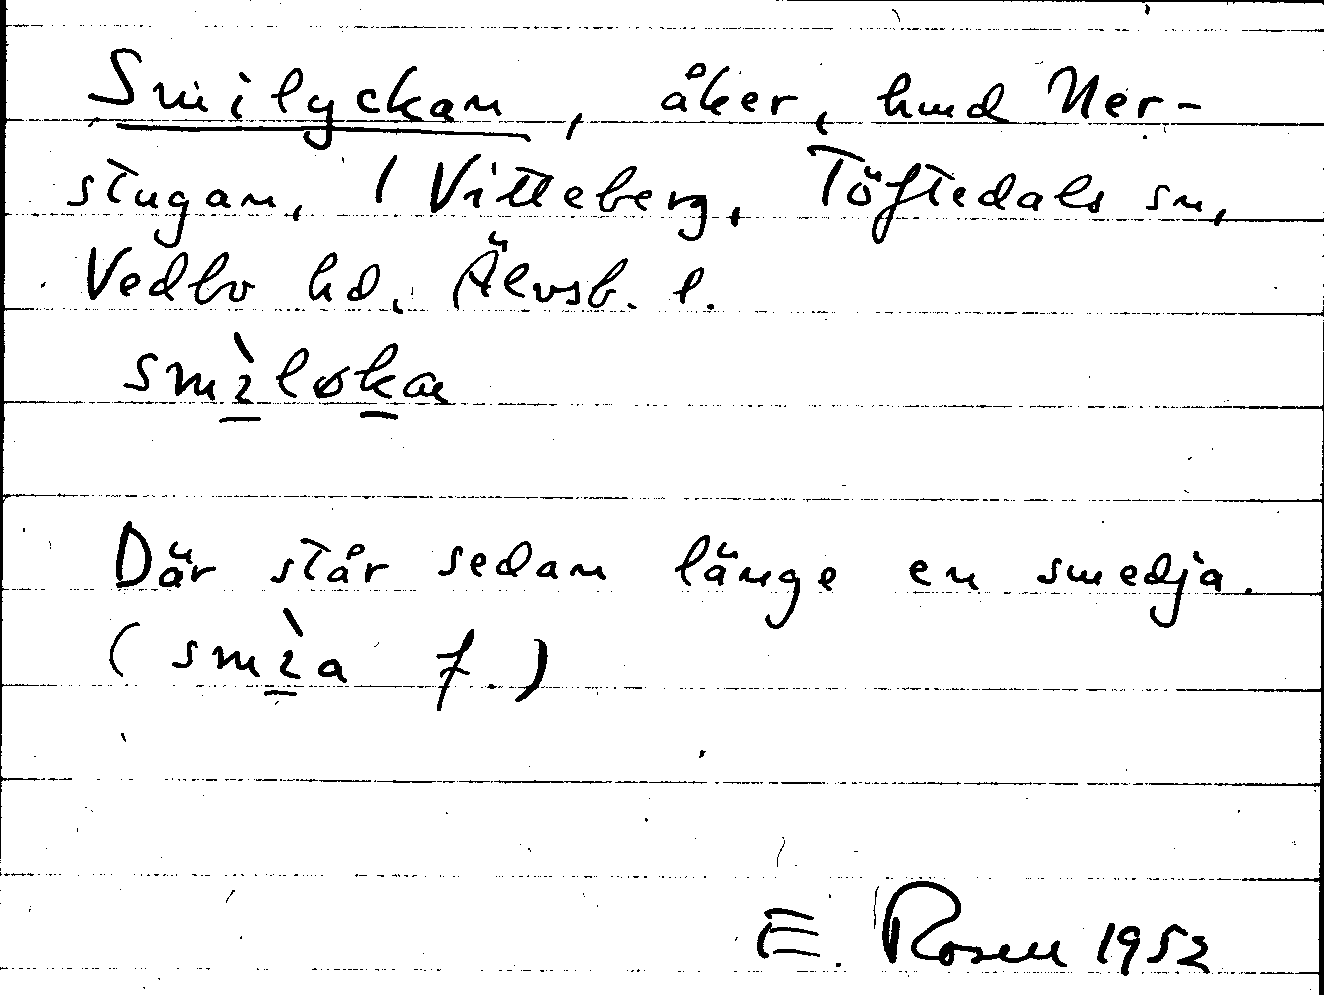 Smilyckan, åker, hmd Ner-
stugan, 1 Vitteberg, Töftedals sn,
Vedbo hd, Älvsb. l.
smìløkɑ
Där står sedan länge en smedja.
(smìa f.)
E. Rosell 1952